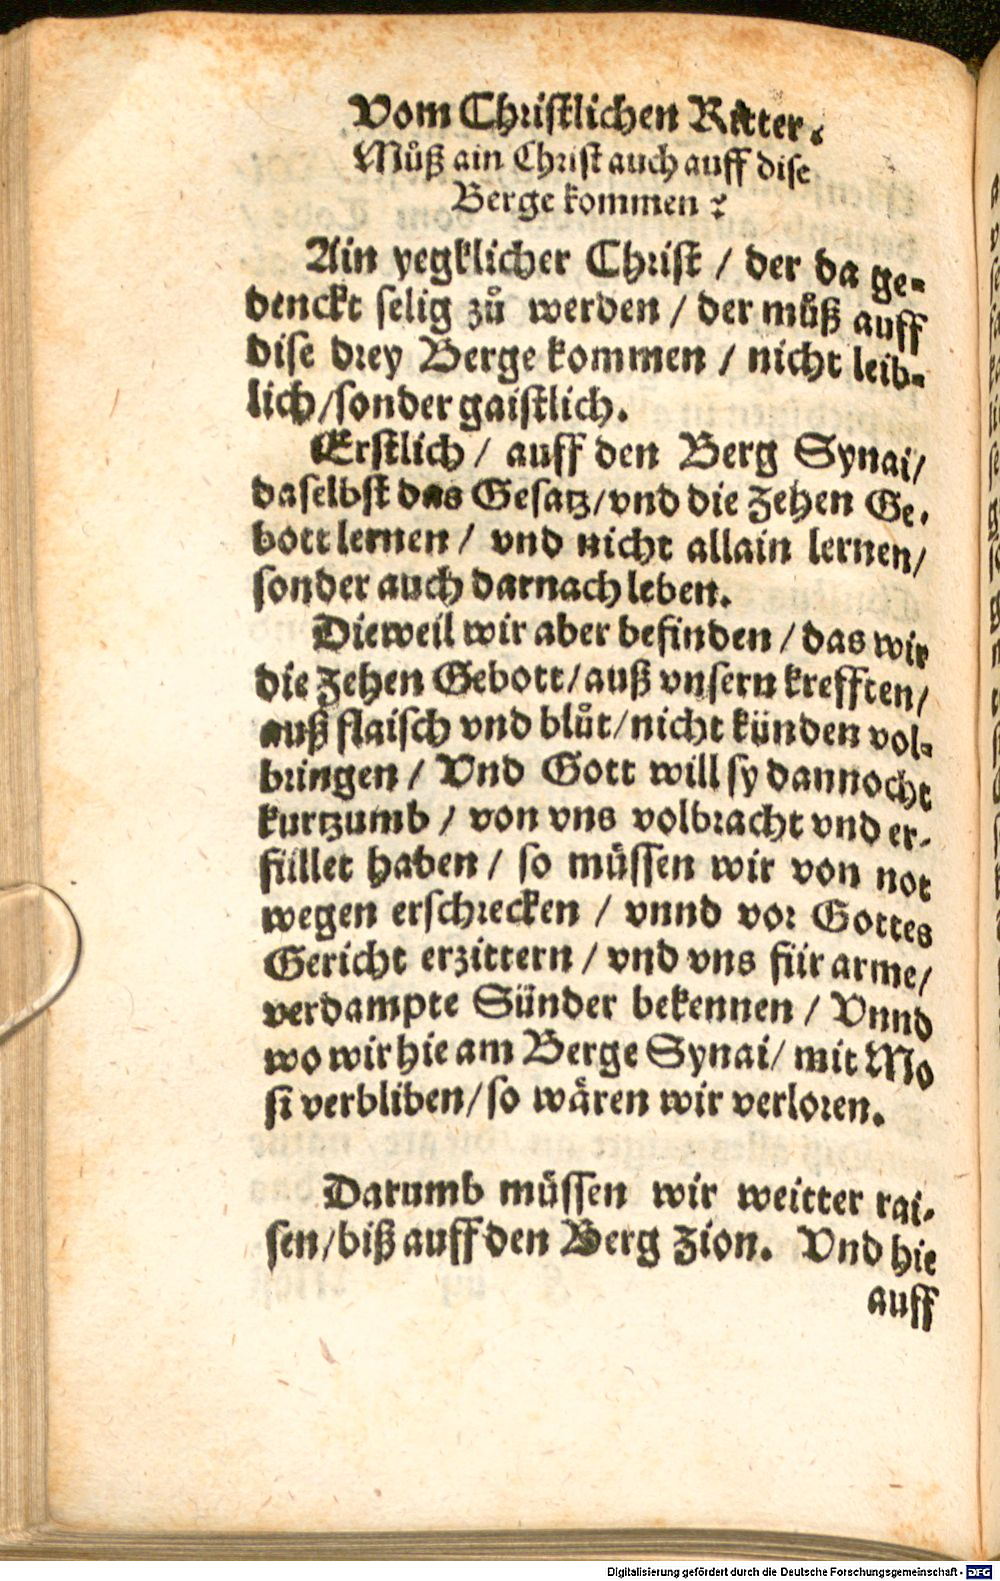 Vom Christlichen Ritter.
Muͦß ain Christ auch auff dise
Berge kommen?
Ain yegklicher Christ / der da ge-
denckt selig zuͦ werden / der muͦß auff
dise drey Berge kommen / nicht leib-
lich / sonder gaistlich.
Erstlich / auff den Berg Synai /
daselbst das Gesatz / vnd die Zehen Ge-
bott lernen / vnd nicht allain lernen /
sonder auch darnach leben.
Dieweil wir aber befinden / das wir
die Zehen Gebott / auß vnsern krefften /
auß flaisch vnd bluͦt / nicht künden vol-
bringen / Vnd Gott will sy dannocht
kurtzumb / von vns volbracht vnd er-
füllet haben / so müssen wir von not
wegen erschrecken / vnnd vor Gottes
Gericht erzittern / vnd vns für arme /
verdampte Sünder bekennen / Vnnd
wo wir hie am Berge Synai / mit Mo
si verbliben / so wären wir verloren.
Darumb müssen wir weitter rai-
sen / biß auff den Berg Zion. Vnd hie
auff
Digitalisierung gefördert durch die Deutsche Forschungsgemeinschaft - DFG